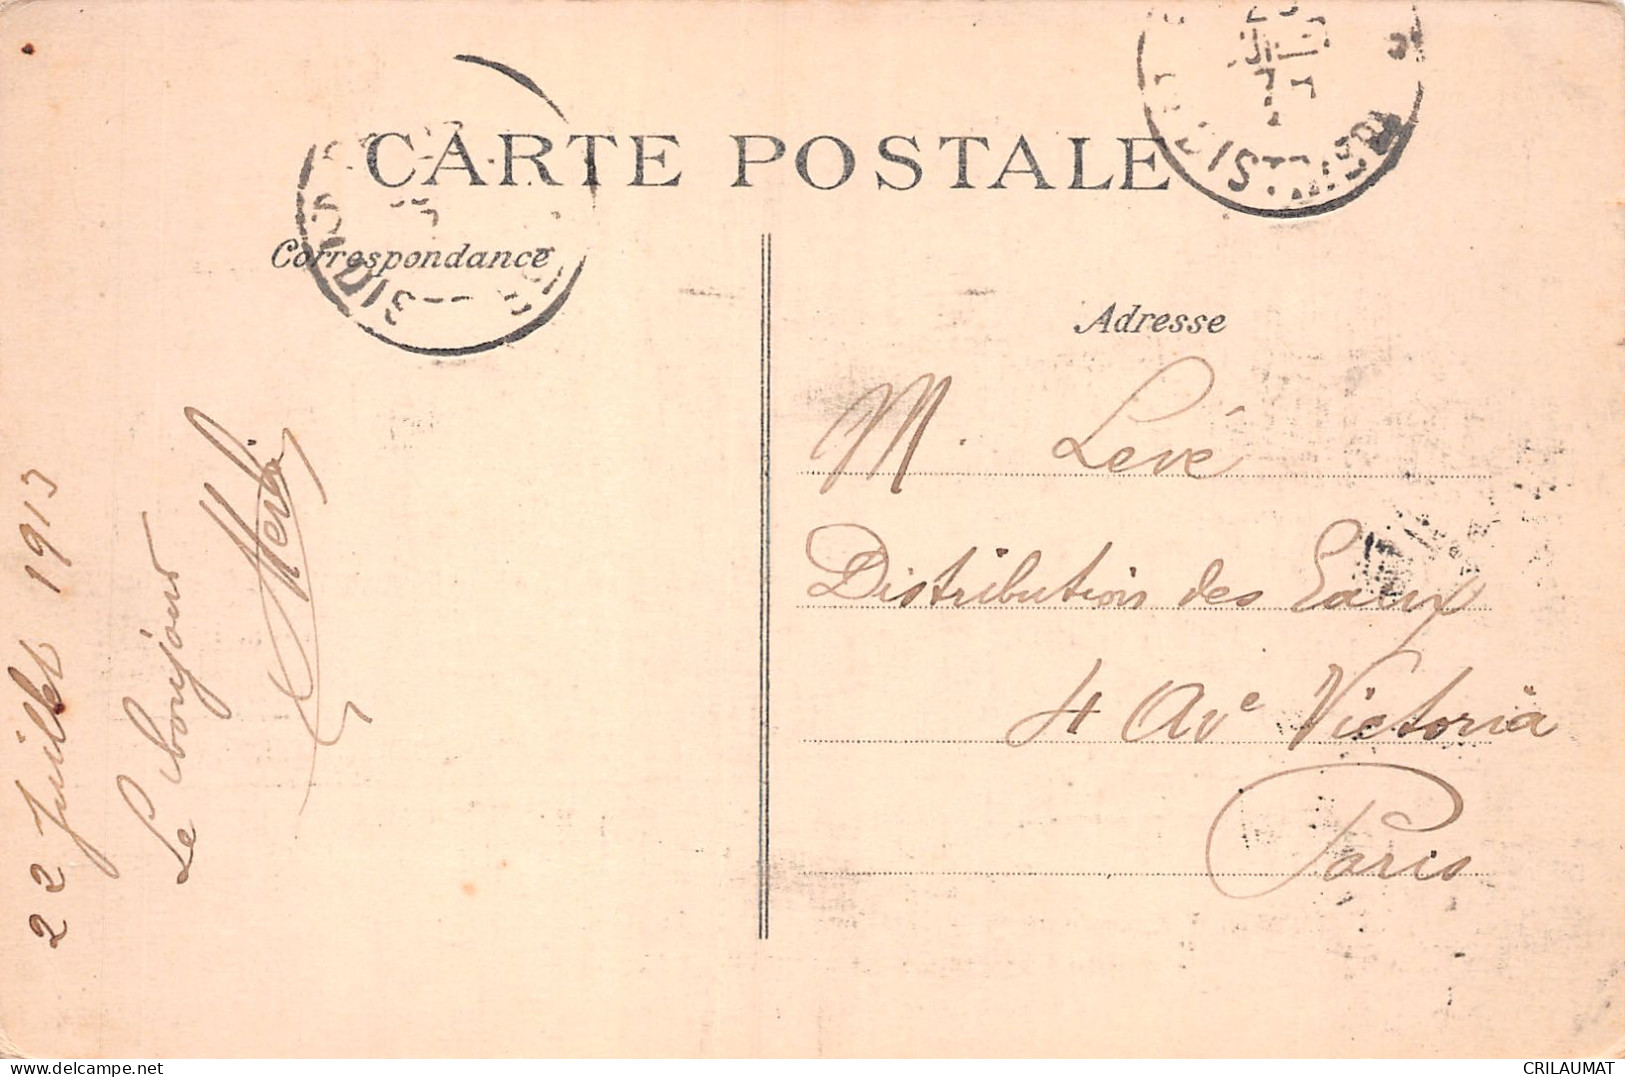 CARTE POSTALE
Correspondance
Adresse
M. Levé
Distribution des Eaux
4 Ave Victoria
Paris
22 Juillet 1913
Le bonjour
CRILAUMAT